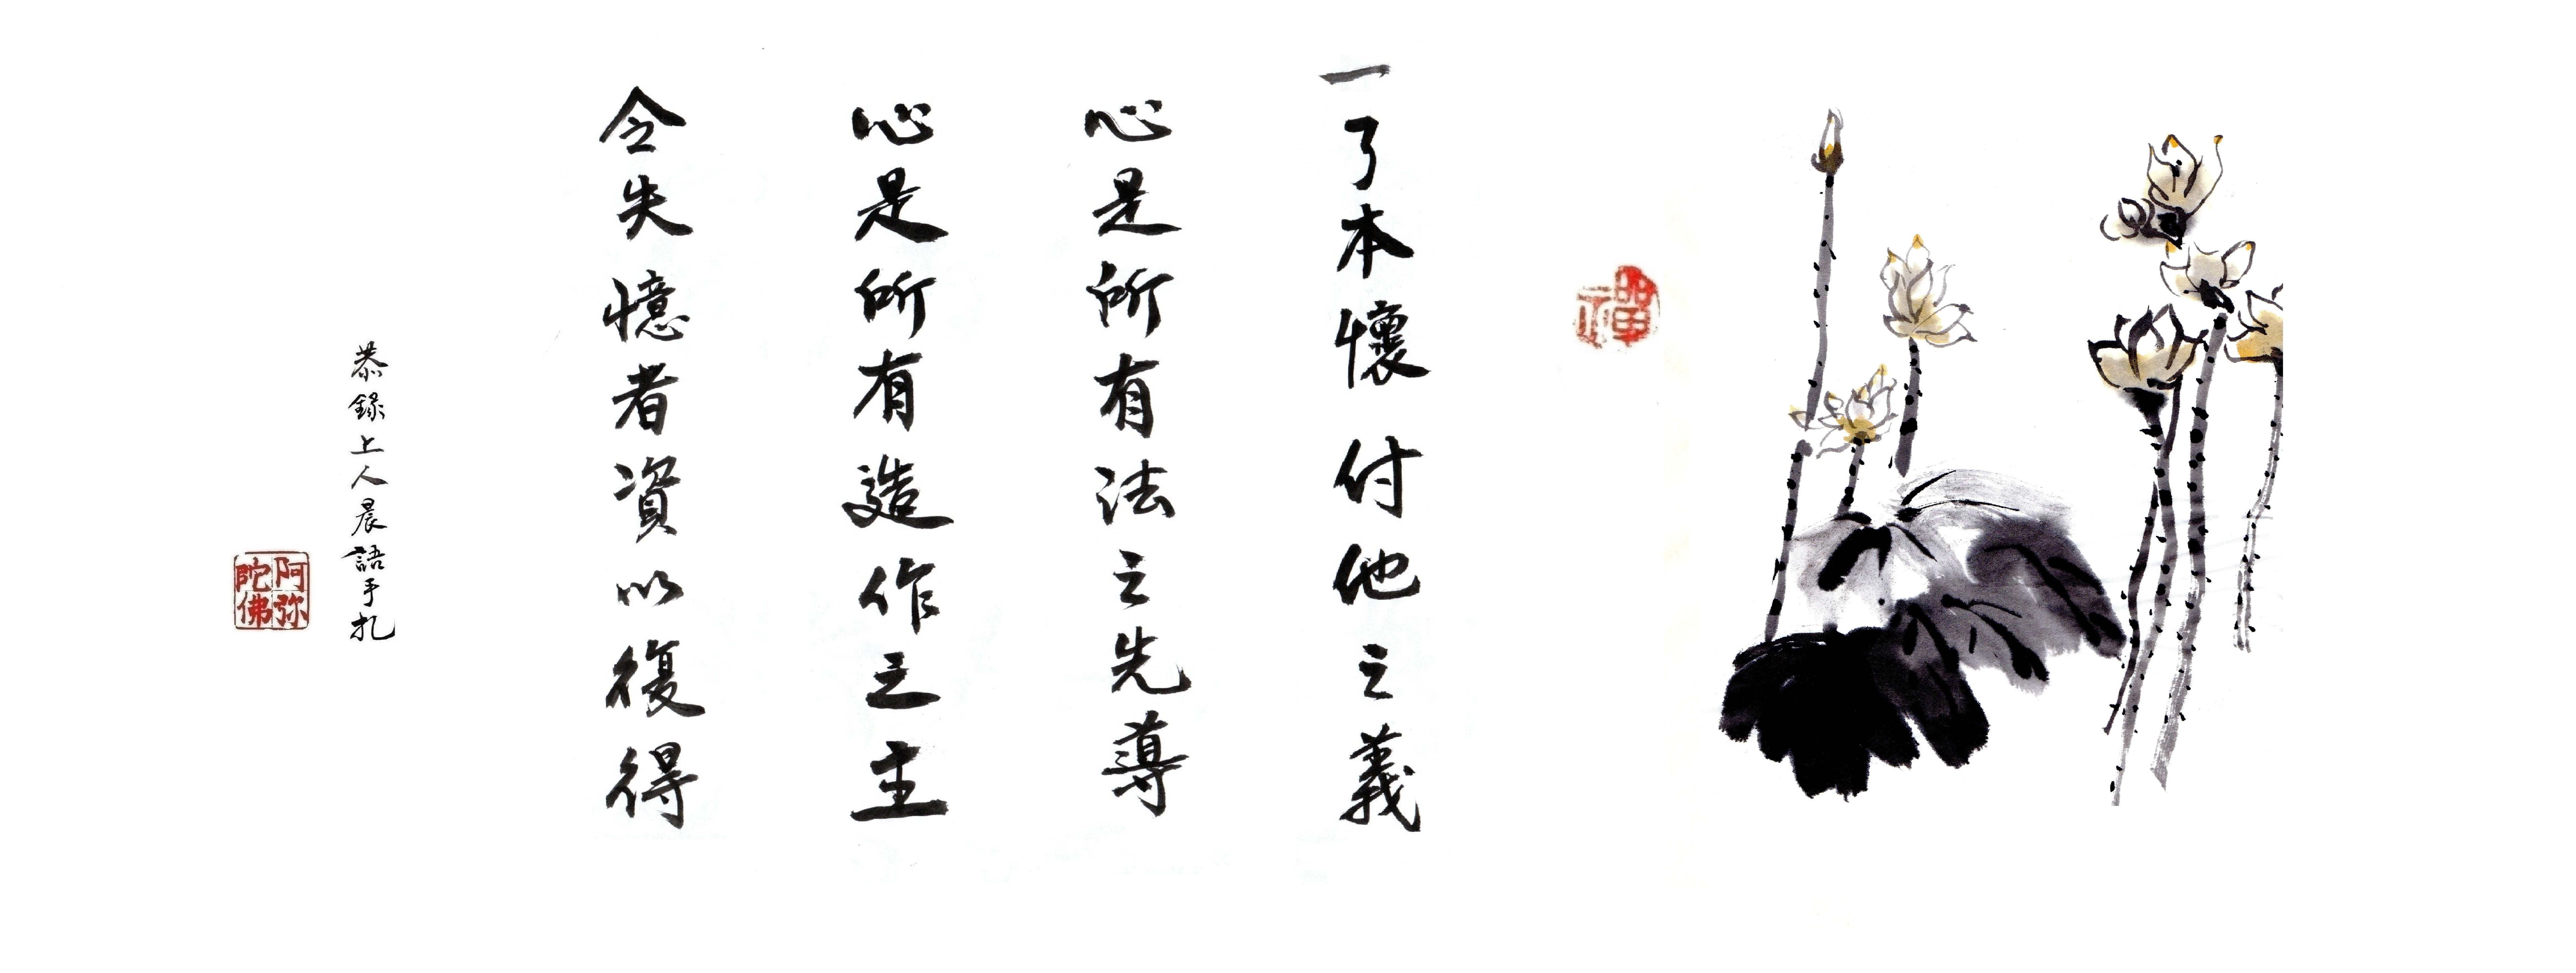 禪
一了本懷付他之義
心是所有法之先導
心是所有造作之主
令失憶者資以復得
恭錄上人晨語手扎
阿弥陀佛